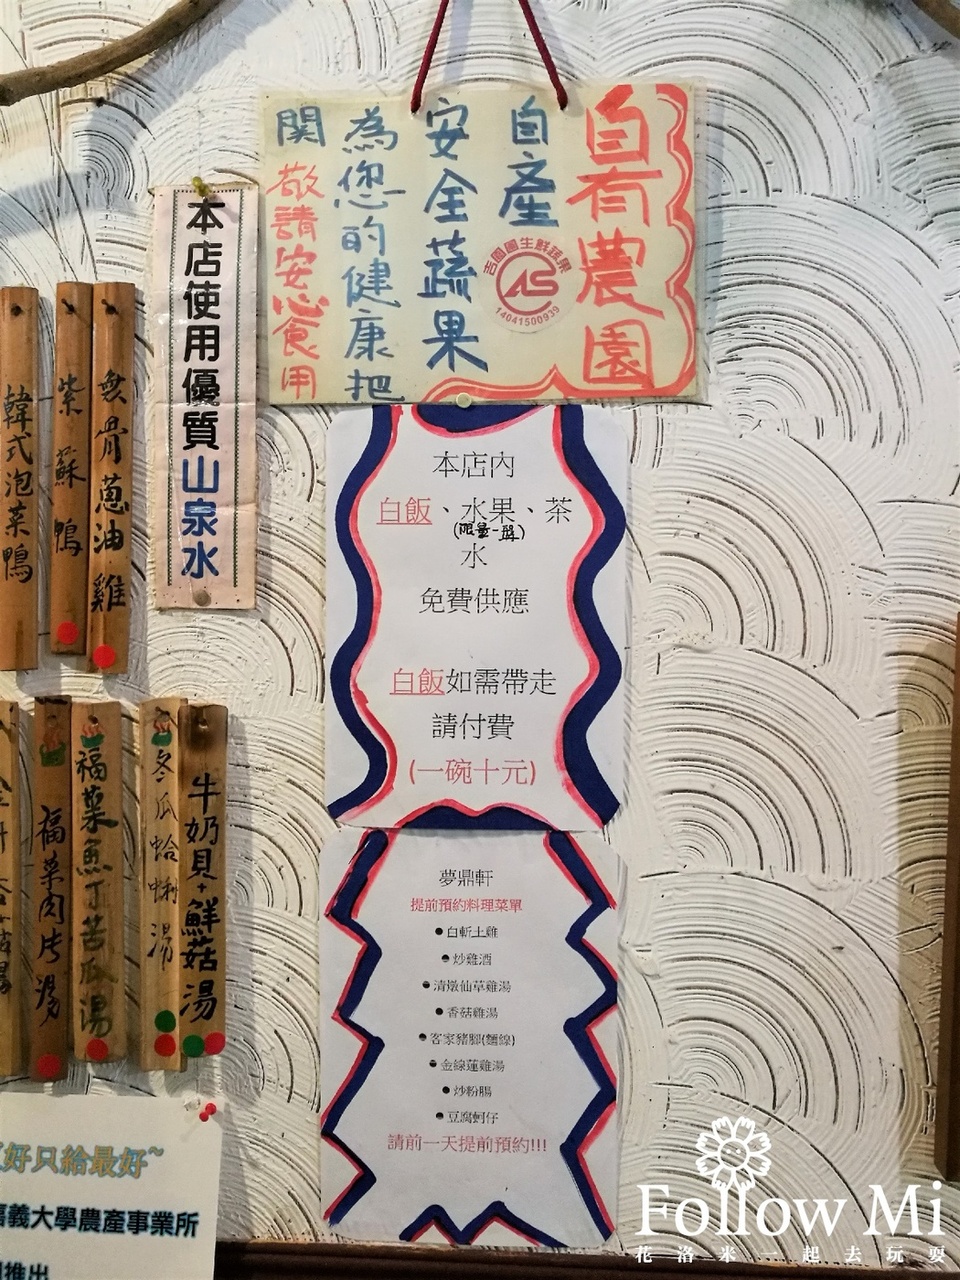 自有農園
自產
安全蔬果
為您的健康把
関 敬請安心食用
吉園圃生鮮蔬果
14041500939
本店使用優質山泉水
無骨蔥油雞
紫蘇鴨
韓式泡菜鴨
本店內
白飯、水果、茶
(限量一盤)
水
免費供應
白飯如需帶走
請付費
(一碗十元)
牛奶貝+鮮菇湯
冬瓜蛤蜊湯
福菜魚丁苦瓜湯
福菜肉片湯
夢鼎軒
提前預約料理菜單
白斬土雞
炒雞酒
清燉仙草雞湯
香菇雞湯
客家豬腳(麵線)
金線蓮雞湯
炒粉腸
豆腐蚵仔
請前一天提前預約!!!
好只給最好~
義大學農產事業所
推出
Follow Mi
花洛米一起去玩耍